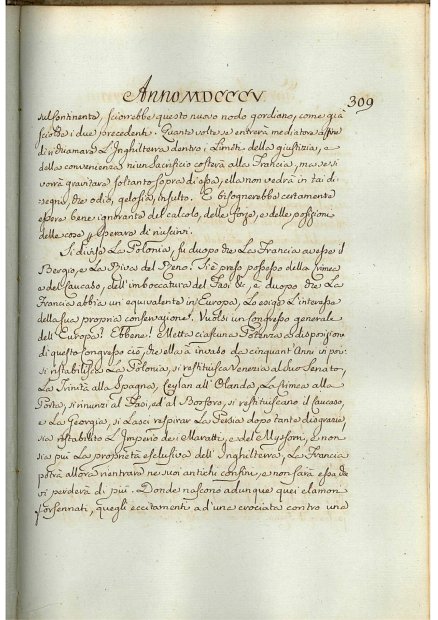 Anno MDCCCV.
309
sul Continente, sciorrebbe questo nuovo nodo gordiano, come già
sciolse i due precedenti. Quante volte se entrerà mediatore affine
di richiamare l'Inghilterra dentro i limiti della giustizia, e
della convenienza niun sacrificio costerà alla Francia, ma se si
vorrà gravitare soltanto sopra di essa, ella non vedrà in tai di-
segni, che odio, gelosia, insulto. E bisognerebbe certamente
essere bene ignorante del calcolo, delle forze, e delle posizioni
delle cose per sperare di riuscirvi.
Si divise la Polonia, fu duopo che la Francia avesse il
Belgio, e la Riva del Reno. Si è preso possesso della Crimea
e del Caucaso, dell'imboccatura del Fasi &c, è duopo che la
Francia abbia un equivalente in Europa, Lo esige l'interesse
della sua propria conservazione. Vuolsi un Congresso generale
dell'Europa? Ebbene! Metta ciascuna Potenza a disposizione
di questo Congresso ciò, che ella à invaso da cinquant'Anni in poi:
si ristabilisca la Polonia, si restituisca Venezia al suo Senato,
La Trinità alla Spagna, Ceylan all'Olanda, La Crimea alla
Porta, si rinunzi al Fasi, ed al Bosforo, si restituiscano il Caucaso,
e la Georgia, si lasci respirar la Persia dopo tante disgrazie,
sia ristabilito l'Imperio dei Maratti, e del Myssore, e non
sia più la proprietà esclusiva dell'Inghilterra, La Francia
potrà allora rientrare ne suoi antichi confini, e non sarà essa che
vi perderà di più. Donde nascono adunque quei clamori
forsennati, quegli eccitamenti ad una crociata contro una